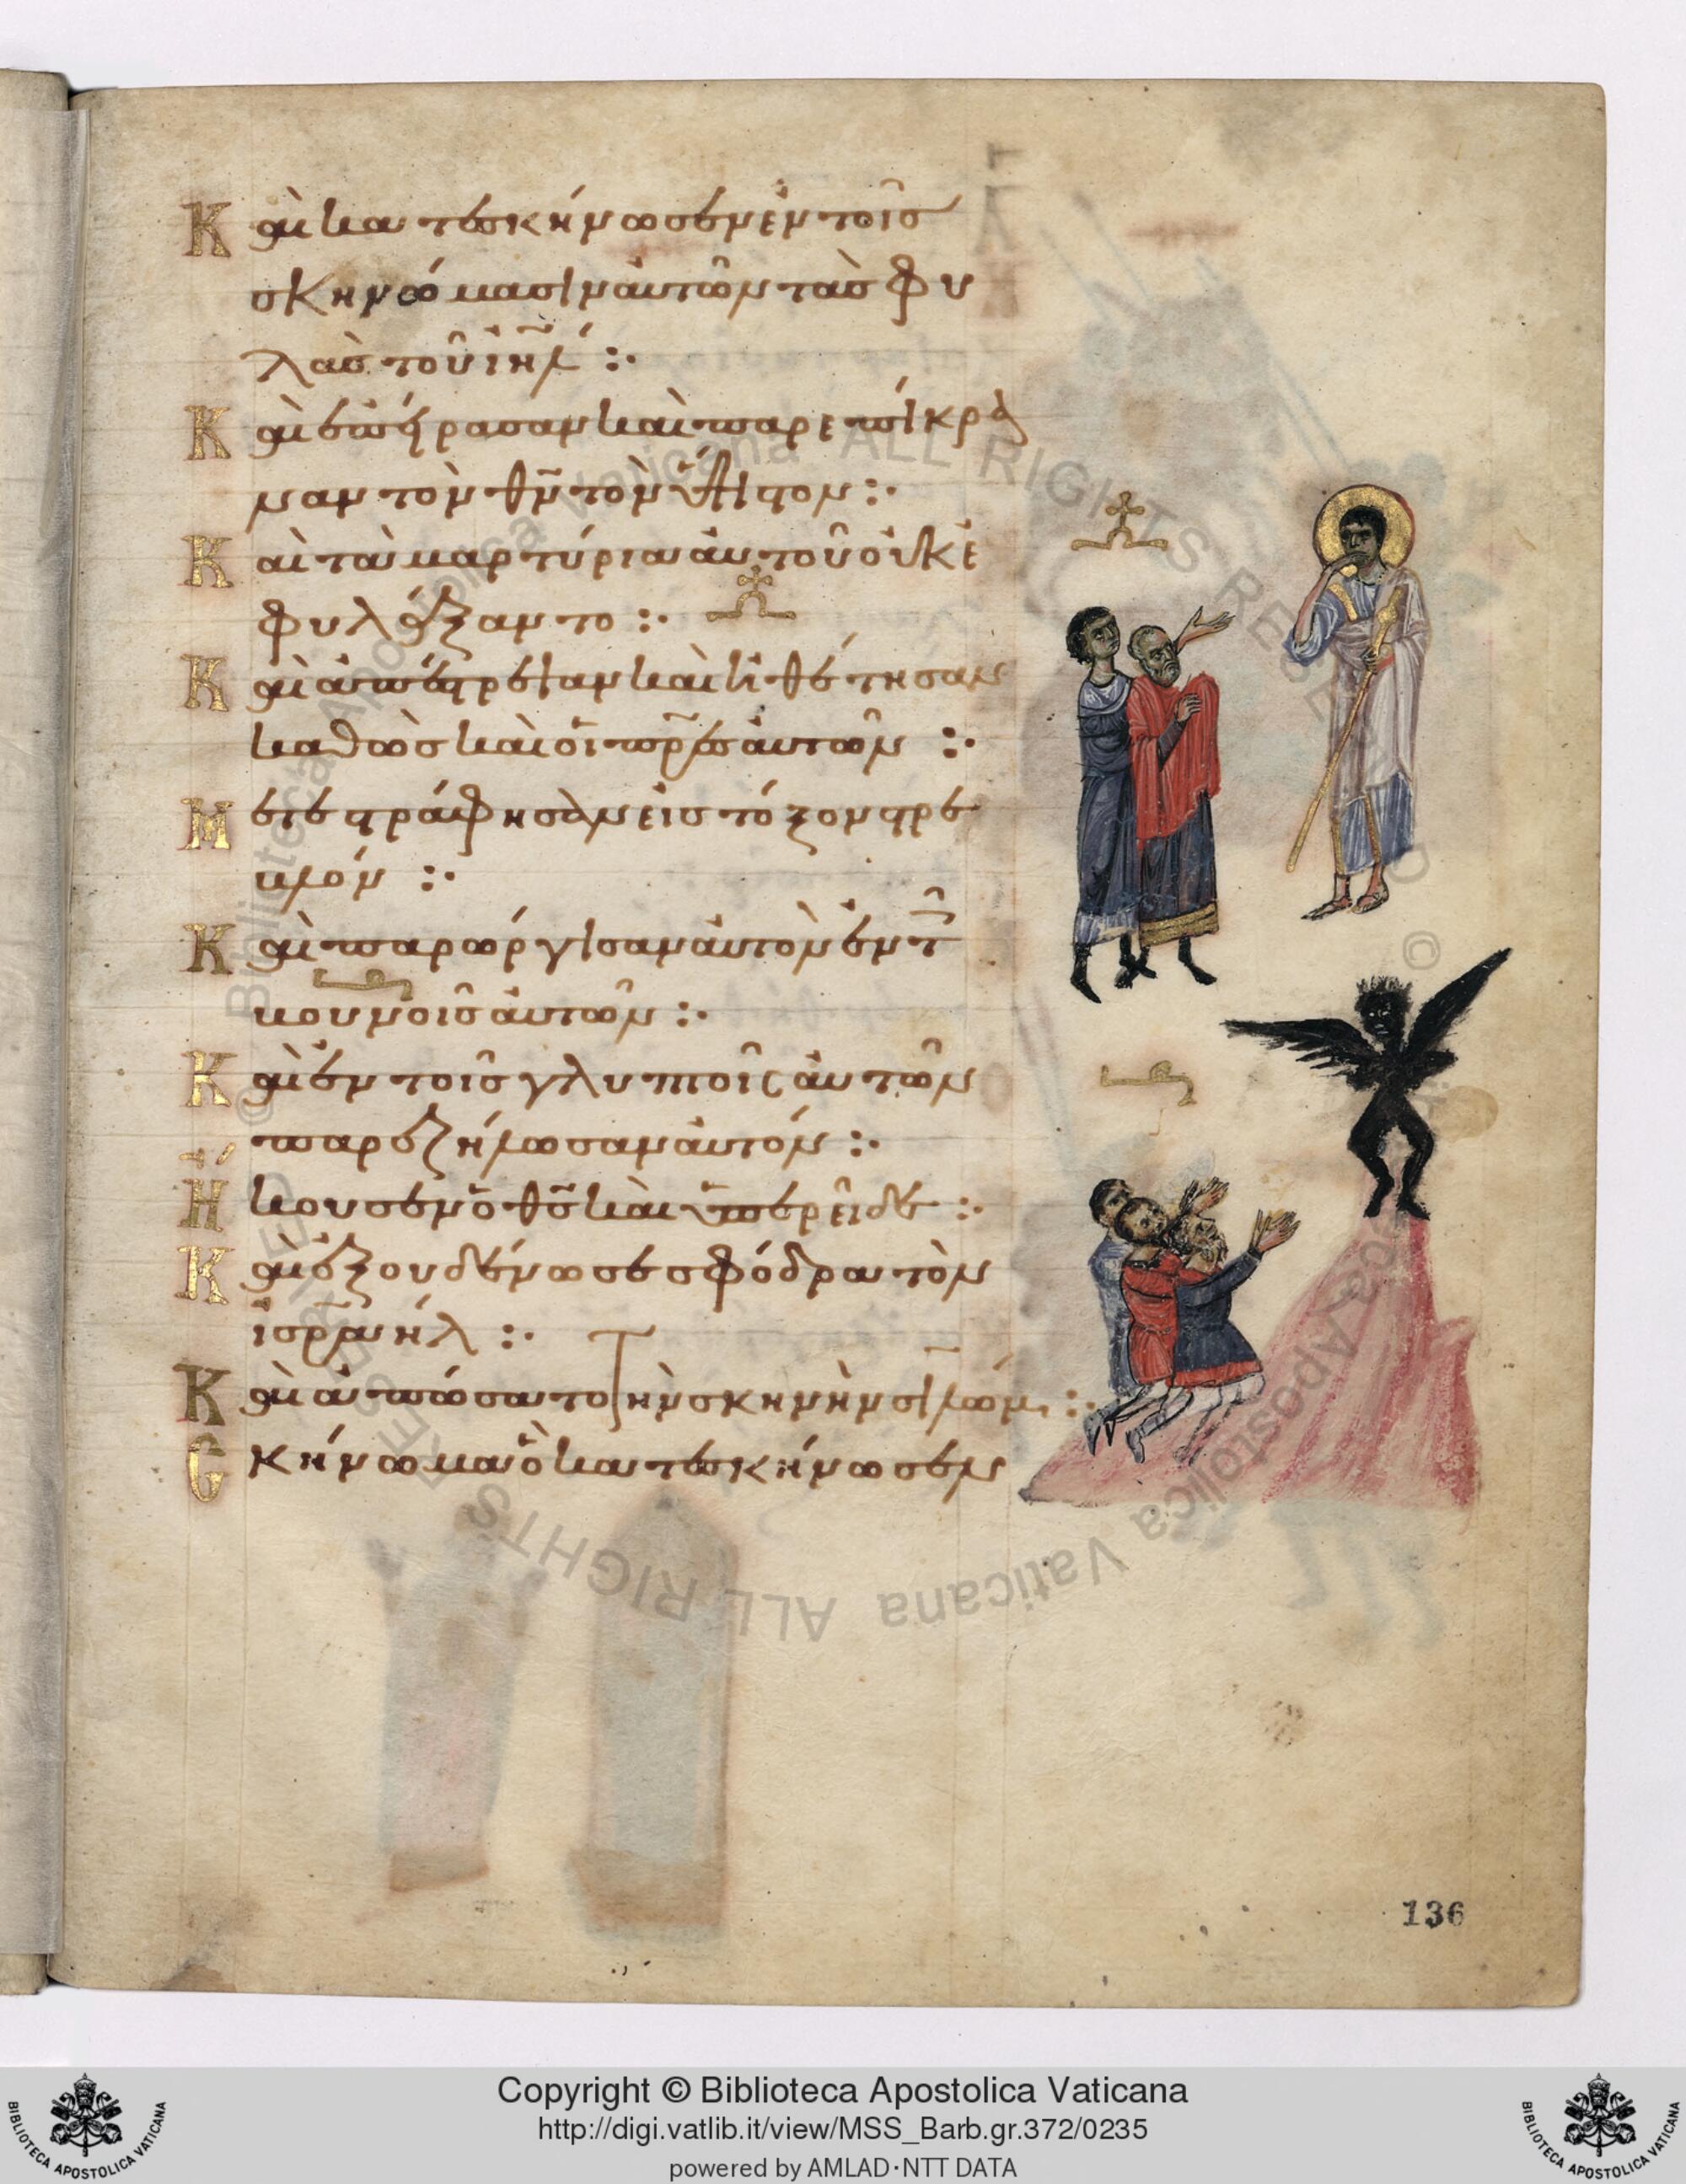 Καὶ κατεσκήνωσεν ἐν τοῖς
σκηνώμασιν αὐτῶν τὰς φυ
λὰς τοῦ ἰηλ :·
Καὶ ἐπείρασαν καὶ παρεπίκρα
ναν τὸν θν τὸν ὕψιστον :·
Καὶ τὰ μαρτύρια αὐτοῦ οὐκ ἐ
φυλάξαντο :·
Καὶ ἀπέστρεψαν καὶ ἠθέτησαν
καθὼς καὶ οἱ πρες αὐτῶν :·
Μετεστράφησαν εἰς τόξον στρε
βλόν :·
Καὶ παρώργισαν αὐτὸν ἐν τ
βουνοῖς αὐτῶν :·
Καὶ ἐν τοῖς γλυπτοῖς αὐτῶν
παρεζήλωσαν αὐτόν :·
Ἤκουσεν ὁ θς καὶ ὑπερεῖδε :·
Καὶ ἐξουδένωσε σφόδρα τὸν
ἰσραήλ :·
Καὶ ἀπώσατο τὴν σκηνὴν σιλώμ :·
Σκήνωμα ὃ κατεσκήνωσεν
136
BIBLIOTECA APOSTOLICA VATICANA
Copyright © Biblioteca Apostolica Vaticana
http://digi.vatlib.it/view/MSS_Barb.gr.372/0235
powered by AMLAD·NTT DATA
BIBLIOTECA APOSTOLICA VATICANA
© Biblioteca Apostolica Vaticana ALL RIGHTS RESERVED
© Biblioteca Apostolica Vaticana ALL RIGHTS RESERVED